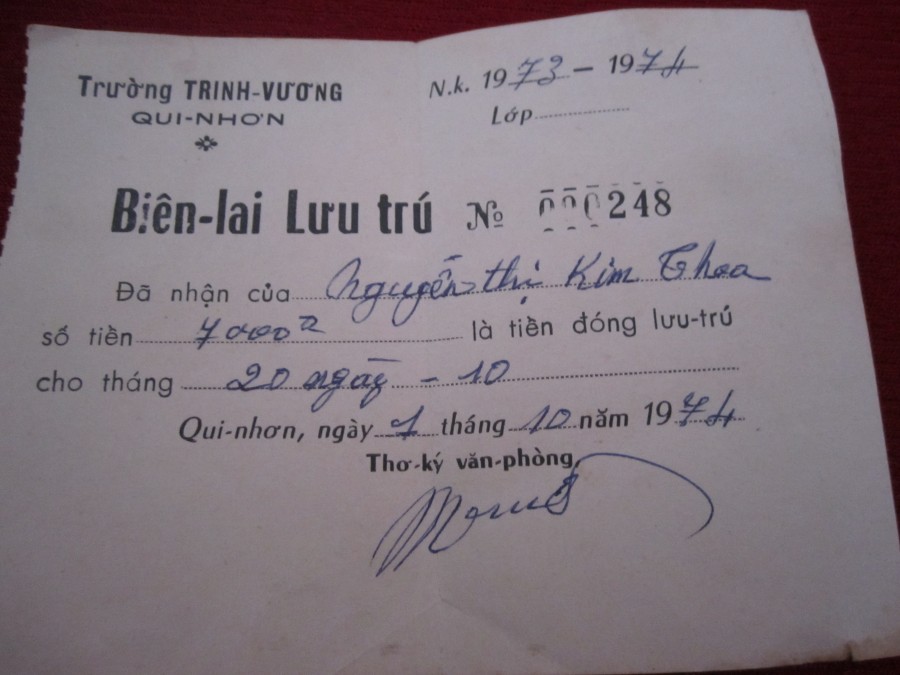 Trường TRINH-VƯƠNG
QUI-NHƠN
N.k. 1973 - 1974
Lớp
Biên-lai Lưu trú № 000248
Đã nhận của Nguyễn thị Kim Thoa
số tiền 7000đ là tiền đóng lưu-trú
cho tháng 20 ngày - 10
Qui-nhơn, ngày 1 tháng 10 năm 1974
Thơ-ký văn-phòng,